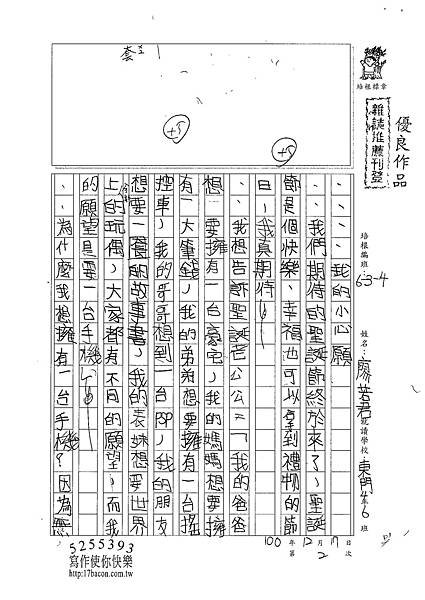 優良作品
雜誌推薦刊登
培根標章
培根編班 653-4
姓名 就讀學校 東門 6 班
100年12月17日
第2次
+5
+5
我的小心願
我們期待的聖誕節終於來了，聖誕
節是個快樂、幸福也可以拿到禮物的節
日，我真期待！
我想告訴聖誕老公公：「我的爸爸
想要擁有一台豪宅，我的媽媽想要擁
有一大筆錢，我的弟弟想要擁有一台搖
控車，我的哥哥想到一台PSP，我的朋友
想要一套的故事書，我的表妹想要世界
上的玩偶，大家都有不同的願望，而我
的願望是要一台手機」
為什麼我想擁有一台手機？因為
5255393
寫作使你快樂
http://17bacon.com.tw